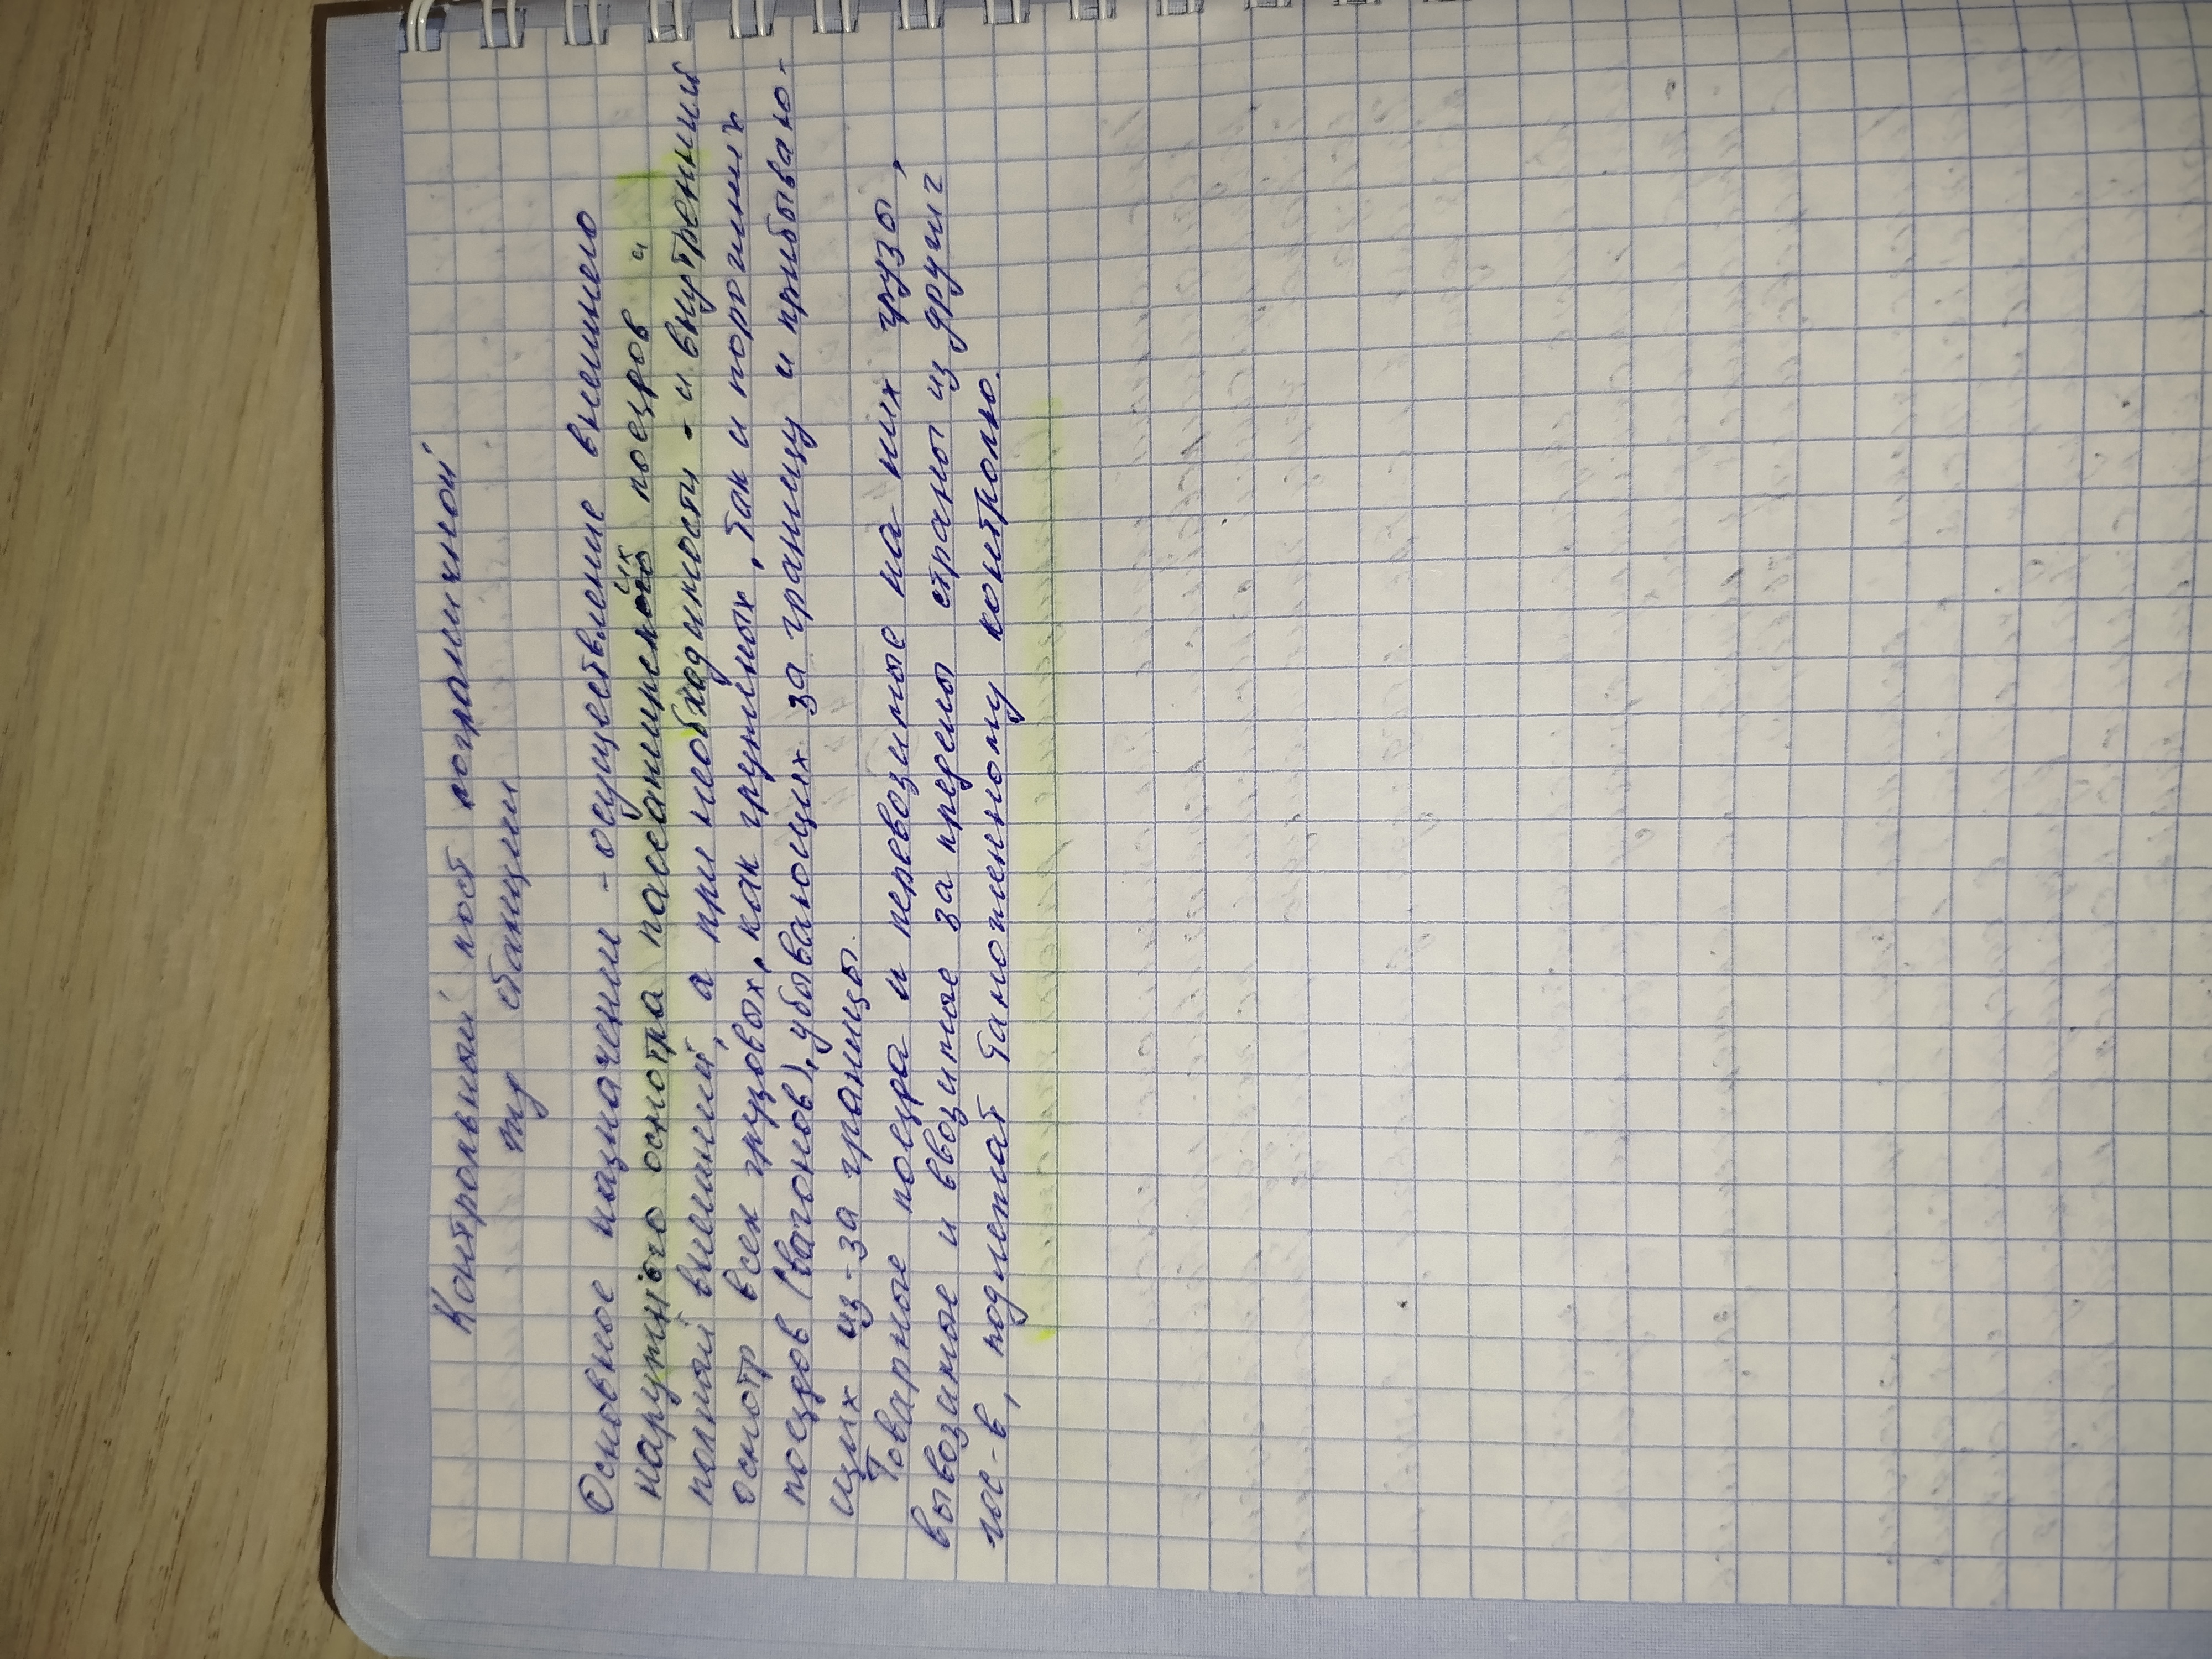 Контрольный пост пограничной
ж/д станции
Основное назначение - осуществление внешнего
наружного осмотра пассажирских поездов и
полный внешний, а при необходимости - и внутренний
осмотр всех грузовых, как груженых, так и порожних
поездов (вагонов), убывающих за границу и прибываю-
щих из-за границы.
Товарные поезда и перевозимые на них грузы,
вывозимые и ввозимое за пределы страны из других
гос-в, подлежат таможенному контролю.